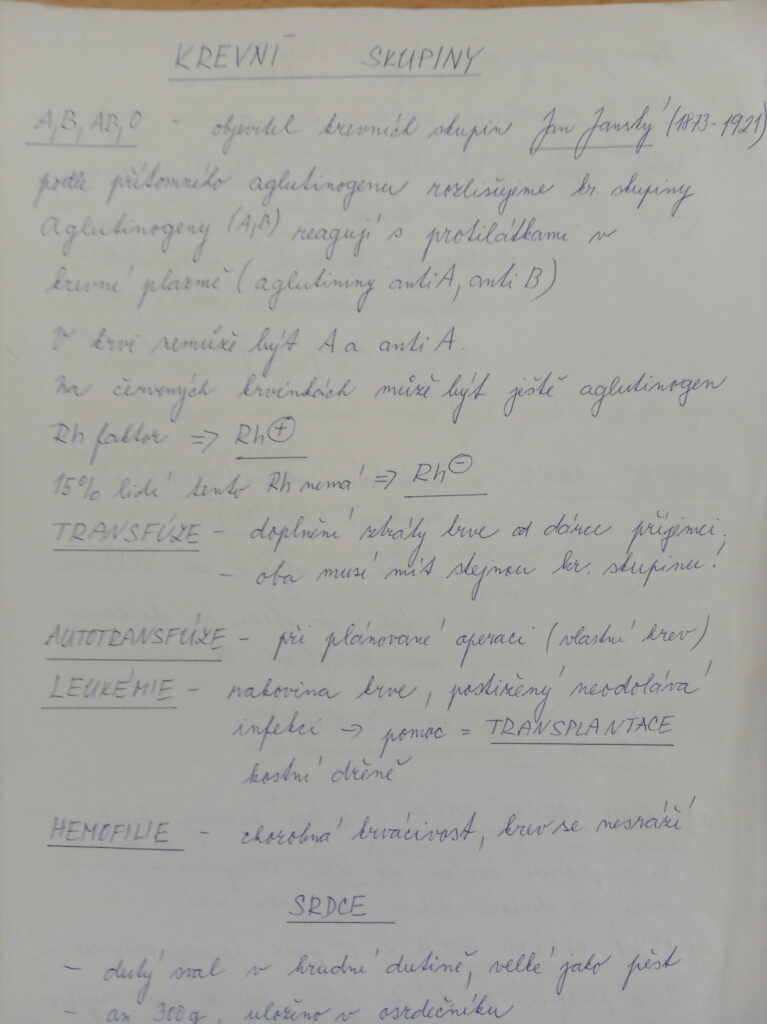 KREVNÍ SKUPINY
A, B, AB, O - objevitel krevních skupin Jan Janský (1873-1921)
podle přítomného aglutinogenu rozlišujeme kr. skupiny
Aglutinogeny (A,B) reagují s protilátkami v
krevní plazmě (aglutininy anti A, anti B)
V krvi nemůže být A a anti A.
Na červených krvinkách může být ještě aglutinogen
Rh faktor => Rh⊕
15% lidí tento Rh nemá => Rh⊖
TRANSFÚZE - doplnění ztráty krve od dárce příjemci.
- oba musí mít stejnou kr. skupinu!
AUTOTRANSFÚZE - při plánované operaci (vlastní krev)
LEUKÉMIE - rakovina krve, postižený neodolává
infekci → pomoc = TRANSPLANTACE
kostní dřeně
HEMOFILIE - chorobná krvácivost, krev se nesráží
SRDCE
- dutý sval v hrudní dutině, velké jako pěst
- 300g, uloženo v osrdečníku